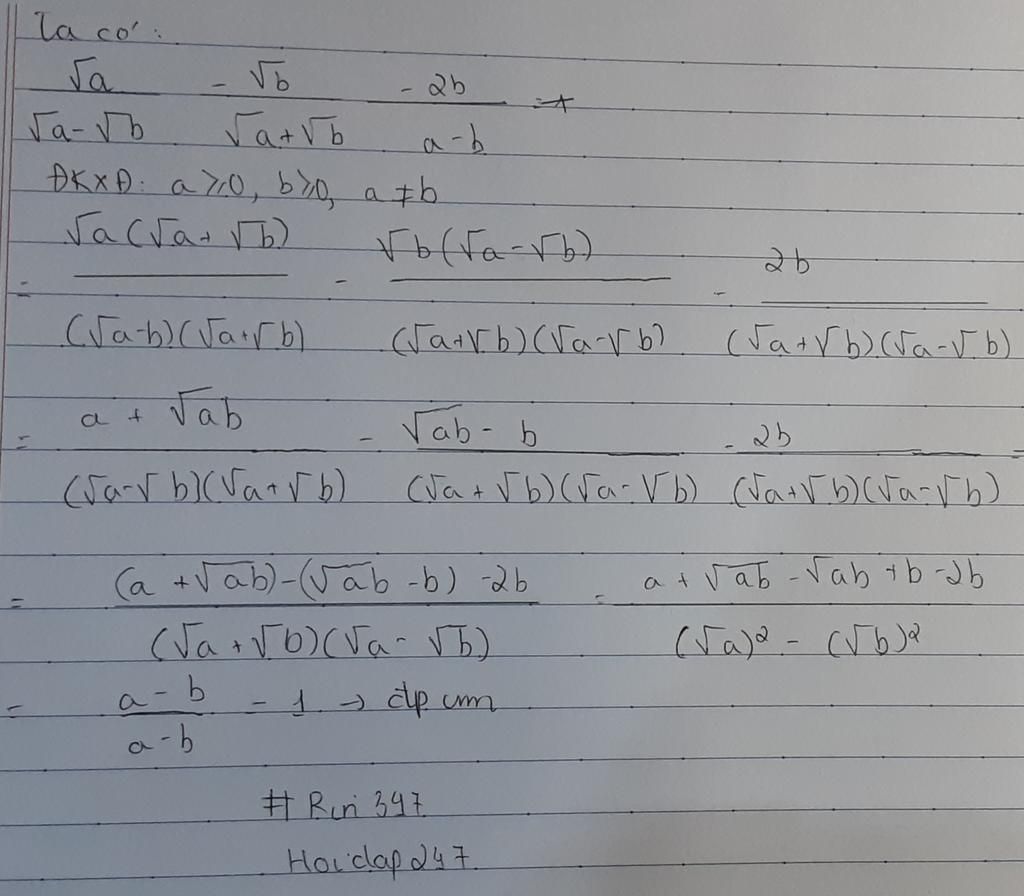 Ta có:
√a/(√a-√b) - √b/(√a+√b) - 2b/(a-b)
ĐKXĐ: a≥0, b≥0, a≠b
= √a(√a+√b)/(√a-b)(√a+√b) - √b(√a-√b)/(√a+√b)(√a-√b) - 2b/(√a+√b)(√a-√b)
= (a+√ab)/(√a-√b)(√a+√b) - (√ab-b)/(√a+√b)(√a-√b) - 2b/(√a+√b)(√a-√b) =
= ((a+√ab)-(√ab-b)-2b)/(√a+√b)(√a-√b) = (a+√ab-√ab+b-2b)/((√a)²-(√b)²)
= (a-b)/(a-b) - 1 → đpcm
# Rin 347
Hoidap247